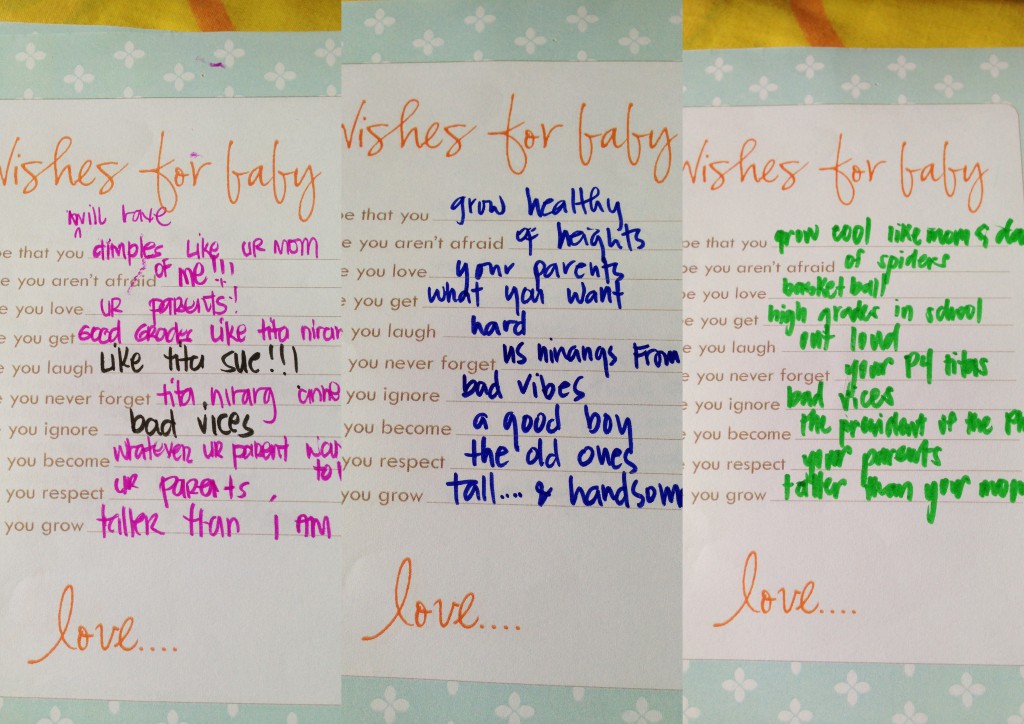 Wishes for baby
will have
be that you dimples like ur mom
e you aren't afraid of me!!!
e you love ur parents!
e you get Good Grades like tita
e you laugh Like tita sue!!!
e you never forget tita, nirarg
e you ignore bad vices
you become whatever ur parent
you respect ur parents,
you grow taller than I AM
love....
Wishes for baby
pe that you grow healthy
e you aren't afraid of heights
e you love your parents
e you get what you want
you laugh hard
you never forget us ninangs From
you ignore bad vibes
you become a good boy
you respect the old ones
you grow tall.... & handsom
love....
Wishes for baby
pe that you grow cool like mom & da
be you aren't afraid of spiders
be you love basketball
e you get high grades in school
e you laugh out loud
e you never forget your P4 titas
e you ignore bad vices
e you become the president of the Ph
you respect your parents
you grow taller than your mom
love....